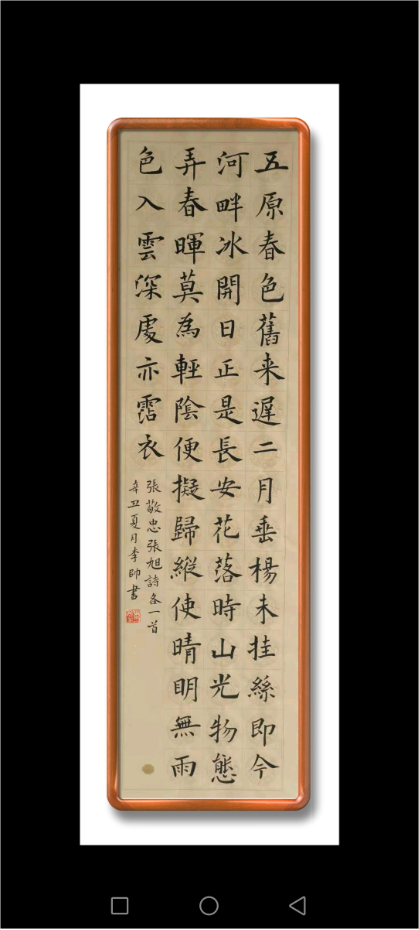 五原春色舊来遲二月垂楊未挂絲即今
河畔冰開日正是長安花落時山光物態
弄春暉莫為輕陰便擬歸縱使晴明無雨
色入雲深處亦霑衣
張敬忠張旭詩各一首
辛丑夏月李帥書